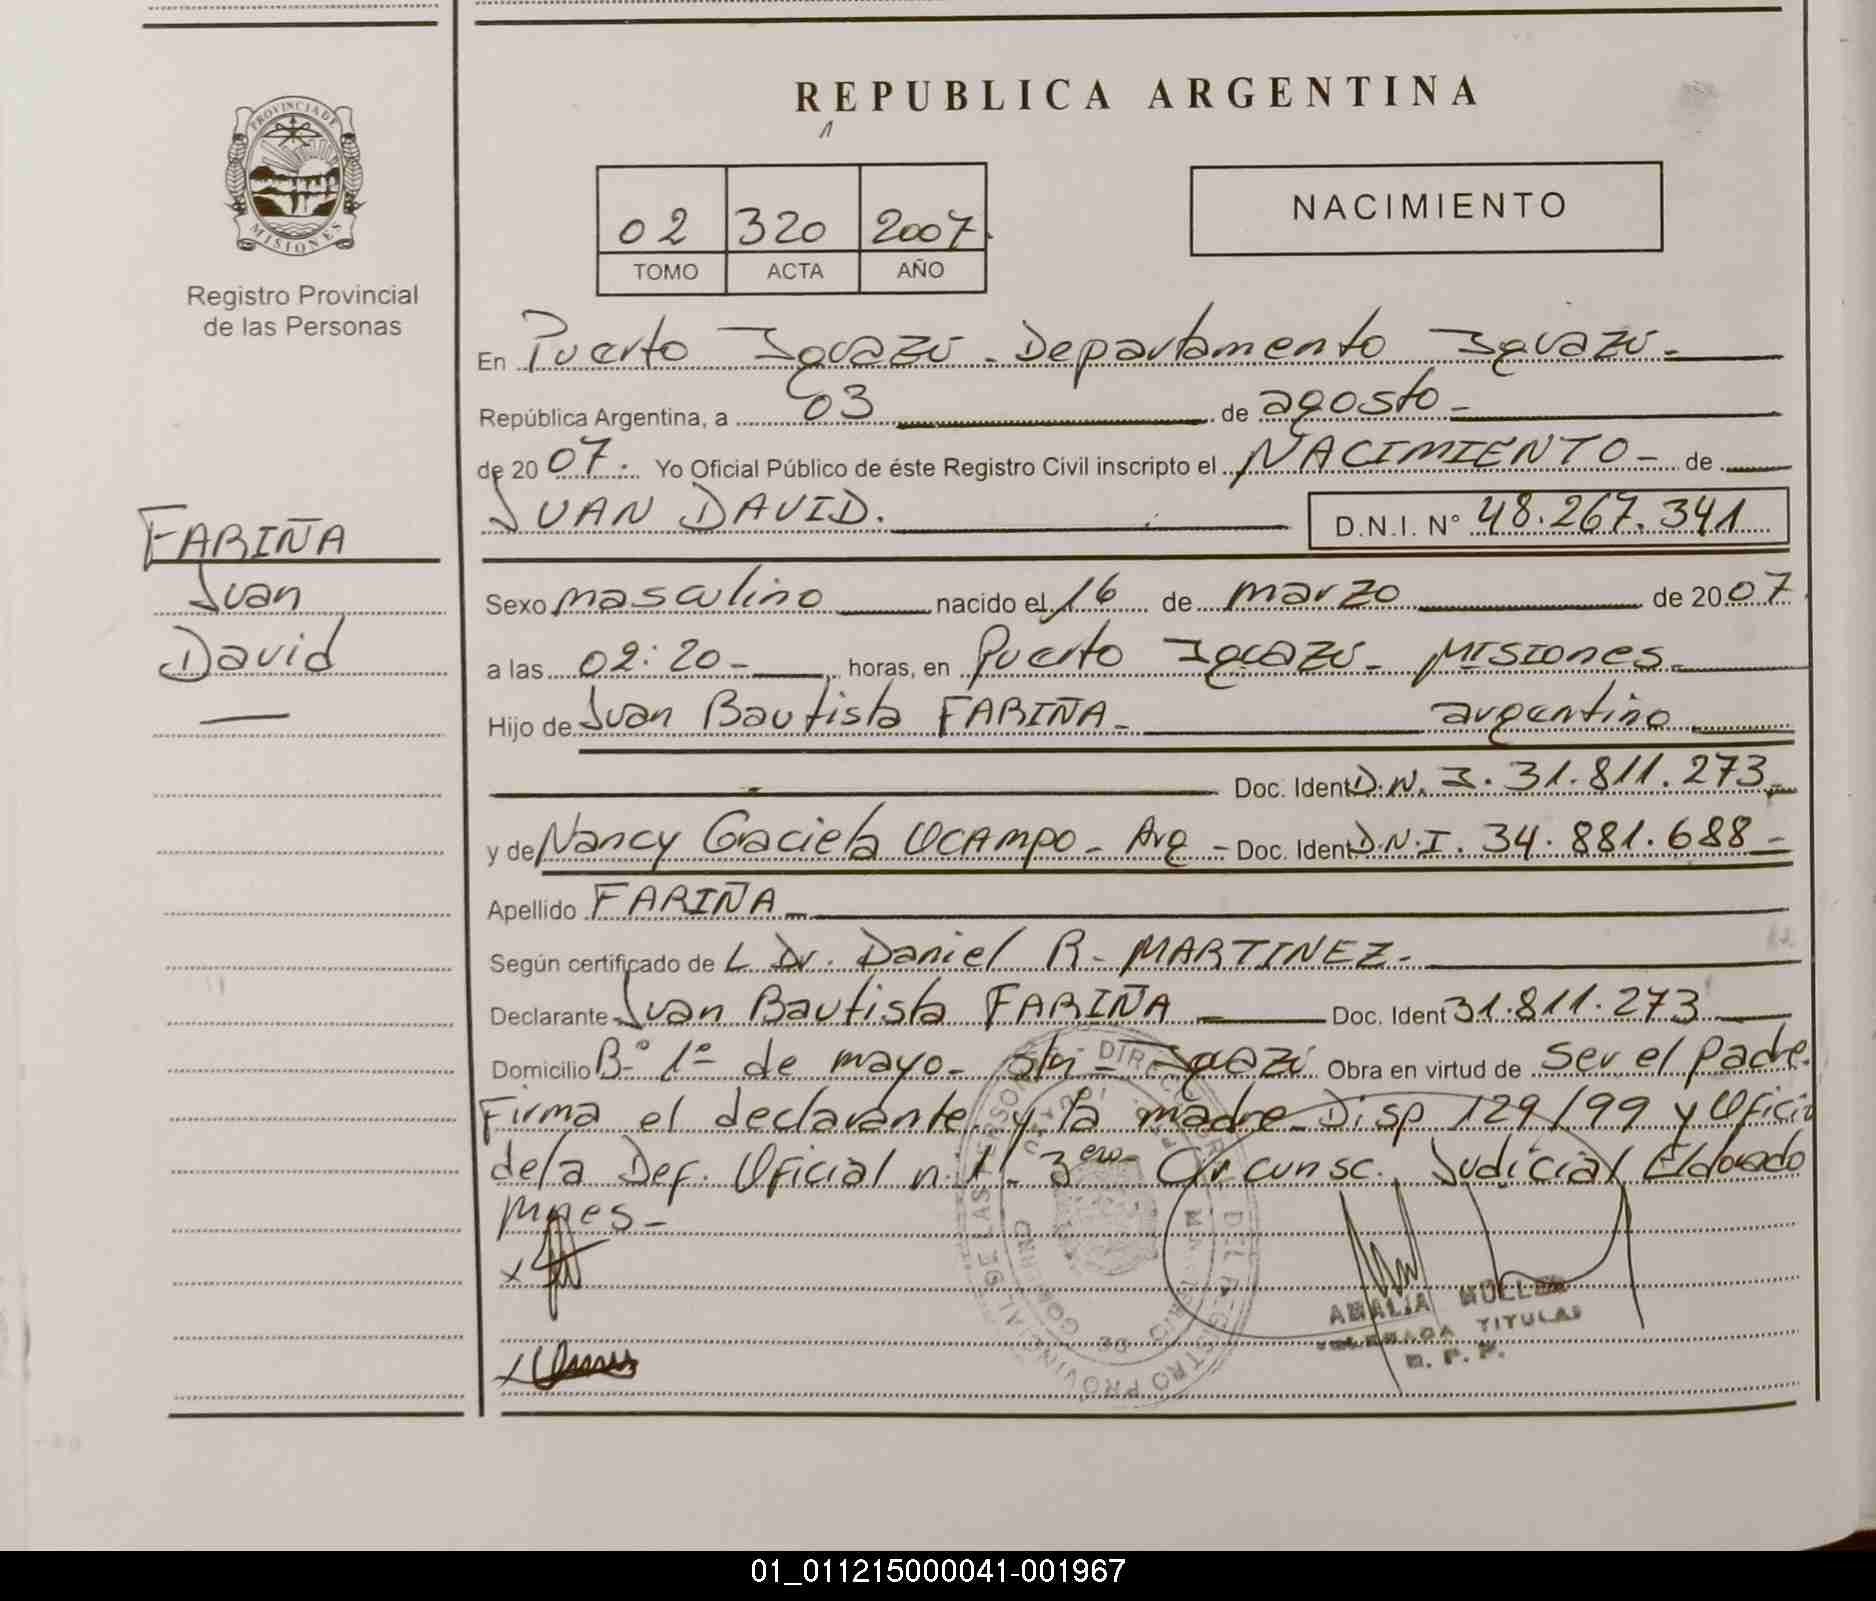 REPUBLICA ARGENTINA
PROVINCIA DE
MISIONES
Registro Provincial
de las Personas
02 320 2007.
TOMO ACTA AÑO
NACIMIENTO
En Puerto Iguazú - Departamento Iguazú -
República Argentina, a 03 de agosto -
de 20 07. Yo Oficial Público de éste Registro Civil inscripto el NACIMIENTO - de
JUAN DAVID. D.N.I. N° 48.267.341
FARIÑA
Juan
David
Sexo masculino nacido el 16 de marzo de 20 07
a las 02:20 - horas, en Puerto Iguazú - MISIONES -
Hijo de Juan Bautista FARIÑA - argentino
Doc. Ident D.N.I. 31.811.273 -
y de Nancy Graciela OCAMPO - Arg - Doc. Ident D.N.I. 34.881.688 -
Apellido FARIÑA -
Según certificado de L Dr. Daniel R. MARTINEZ -
Declarante Juan Bautista FARIÑA - Doc. Ident 31.811.273
Domicilio B° 1° de mayo - s/n - Iguazú Obra en virtud de Ser el Padre.
Firma el declarante y la madre - Disp 129/99 y Oficio
de la Def. Oficial n. 1 - 3era Circunsc. Judicial Eldorado
Mnes -
x
x
AMALIA MULLER
DELEGADA TITULAR
R. P. P.
01_011215000041-001967